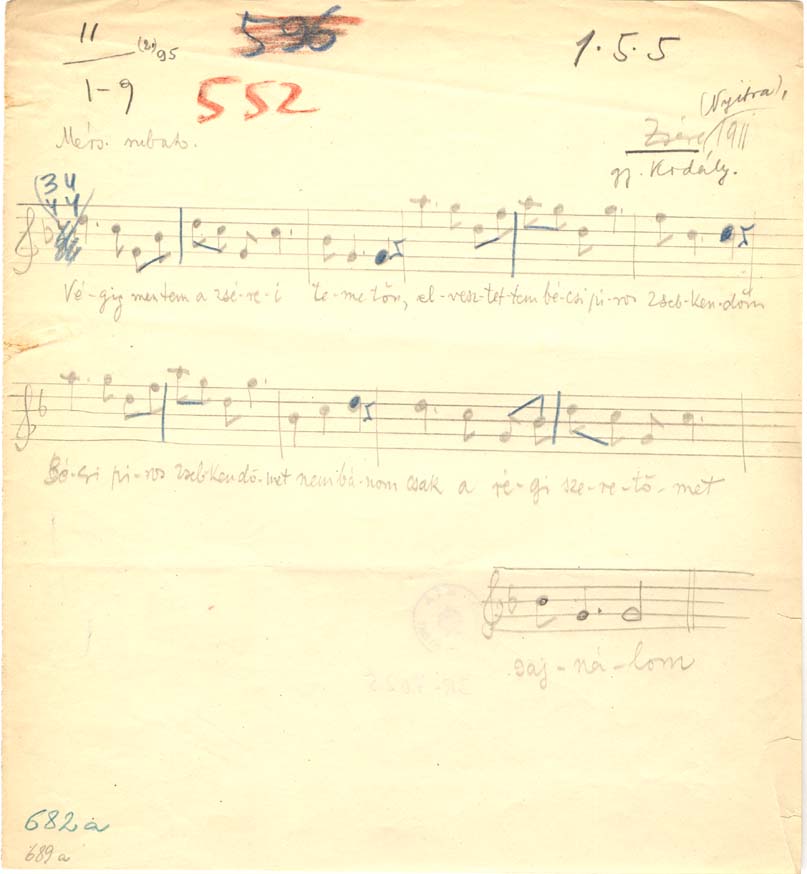 11
(2.) 95
1-9
596
552
1·5·5
(Nyitra),
Zsére, 1911
gy. Kodály.
Mérs. rubato.
3 4
4 4
Vé-gig mentem a zsé-re-i te-me-tőn, el-vesz-tet-tem bé-csi pi-ros zseb-ken-dőm
Bé-csi pi-ros zseb-kendő-met nem bá-nom csak a ré-gi sze-re-tő-met
saj-ná-lom
682a
689a